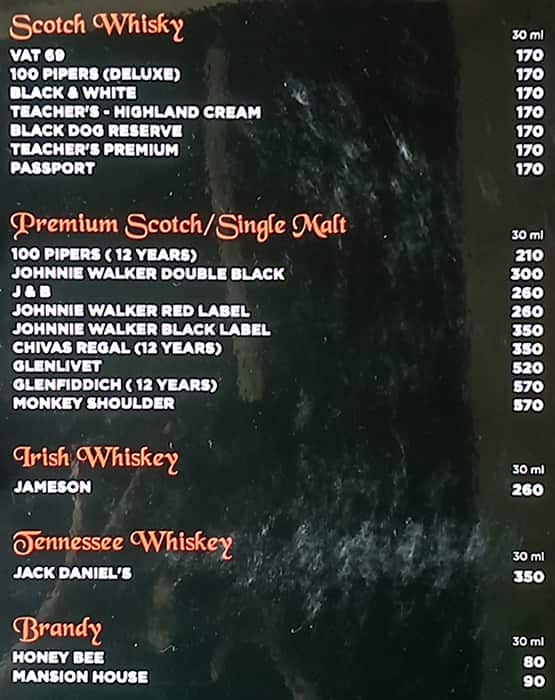 Scotch Whisky 30 ml
VAT 69 170
100 PIPERS (DELUXE) 170
BLACK & WHITE 170
TEACHER'S - HIGHLAND CREAM 170
BLACK DOG RESERVE 170
TEACHER'S PREMIUM 170
PASSPORT 170
Premium Scotch/Single Malt 30 ml
100 PIPERS ( 12 YEARS) 210
JOHNNIE WALKER DOUBLE BLACK 300
J & B 260
JOHNNIE WALKER RED LABEL 260
JOHNNIE WALKER BLACK LABEL 350
CHIVAS REGAL (12 YEARS) 350
GLENLIVET 520
GLENFIDDICH ( 12 YEARS) 570
MONKEY SHOULDER 570
Irish Whiskey 30 ml
JAMESON 260
Tennessee Whiskey 30 ml
JACK DANIEL'S 350
Brandy 30 ml
HONEY BEE 80
MANSION HOUSE 90